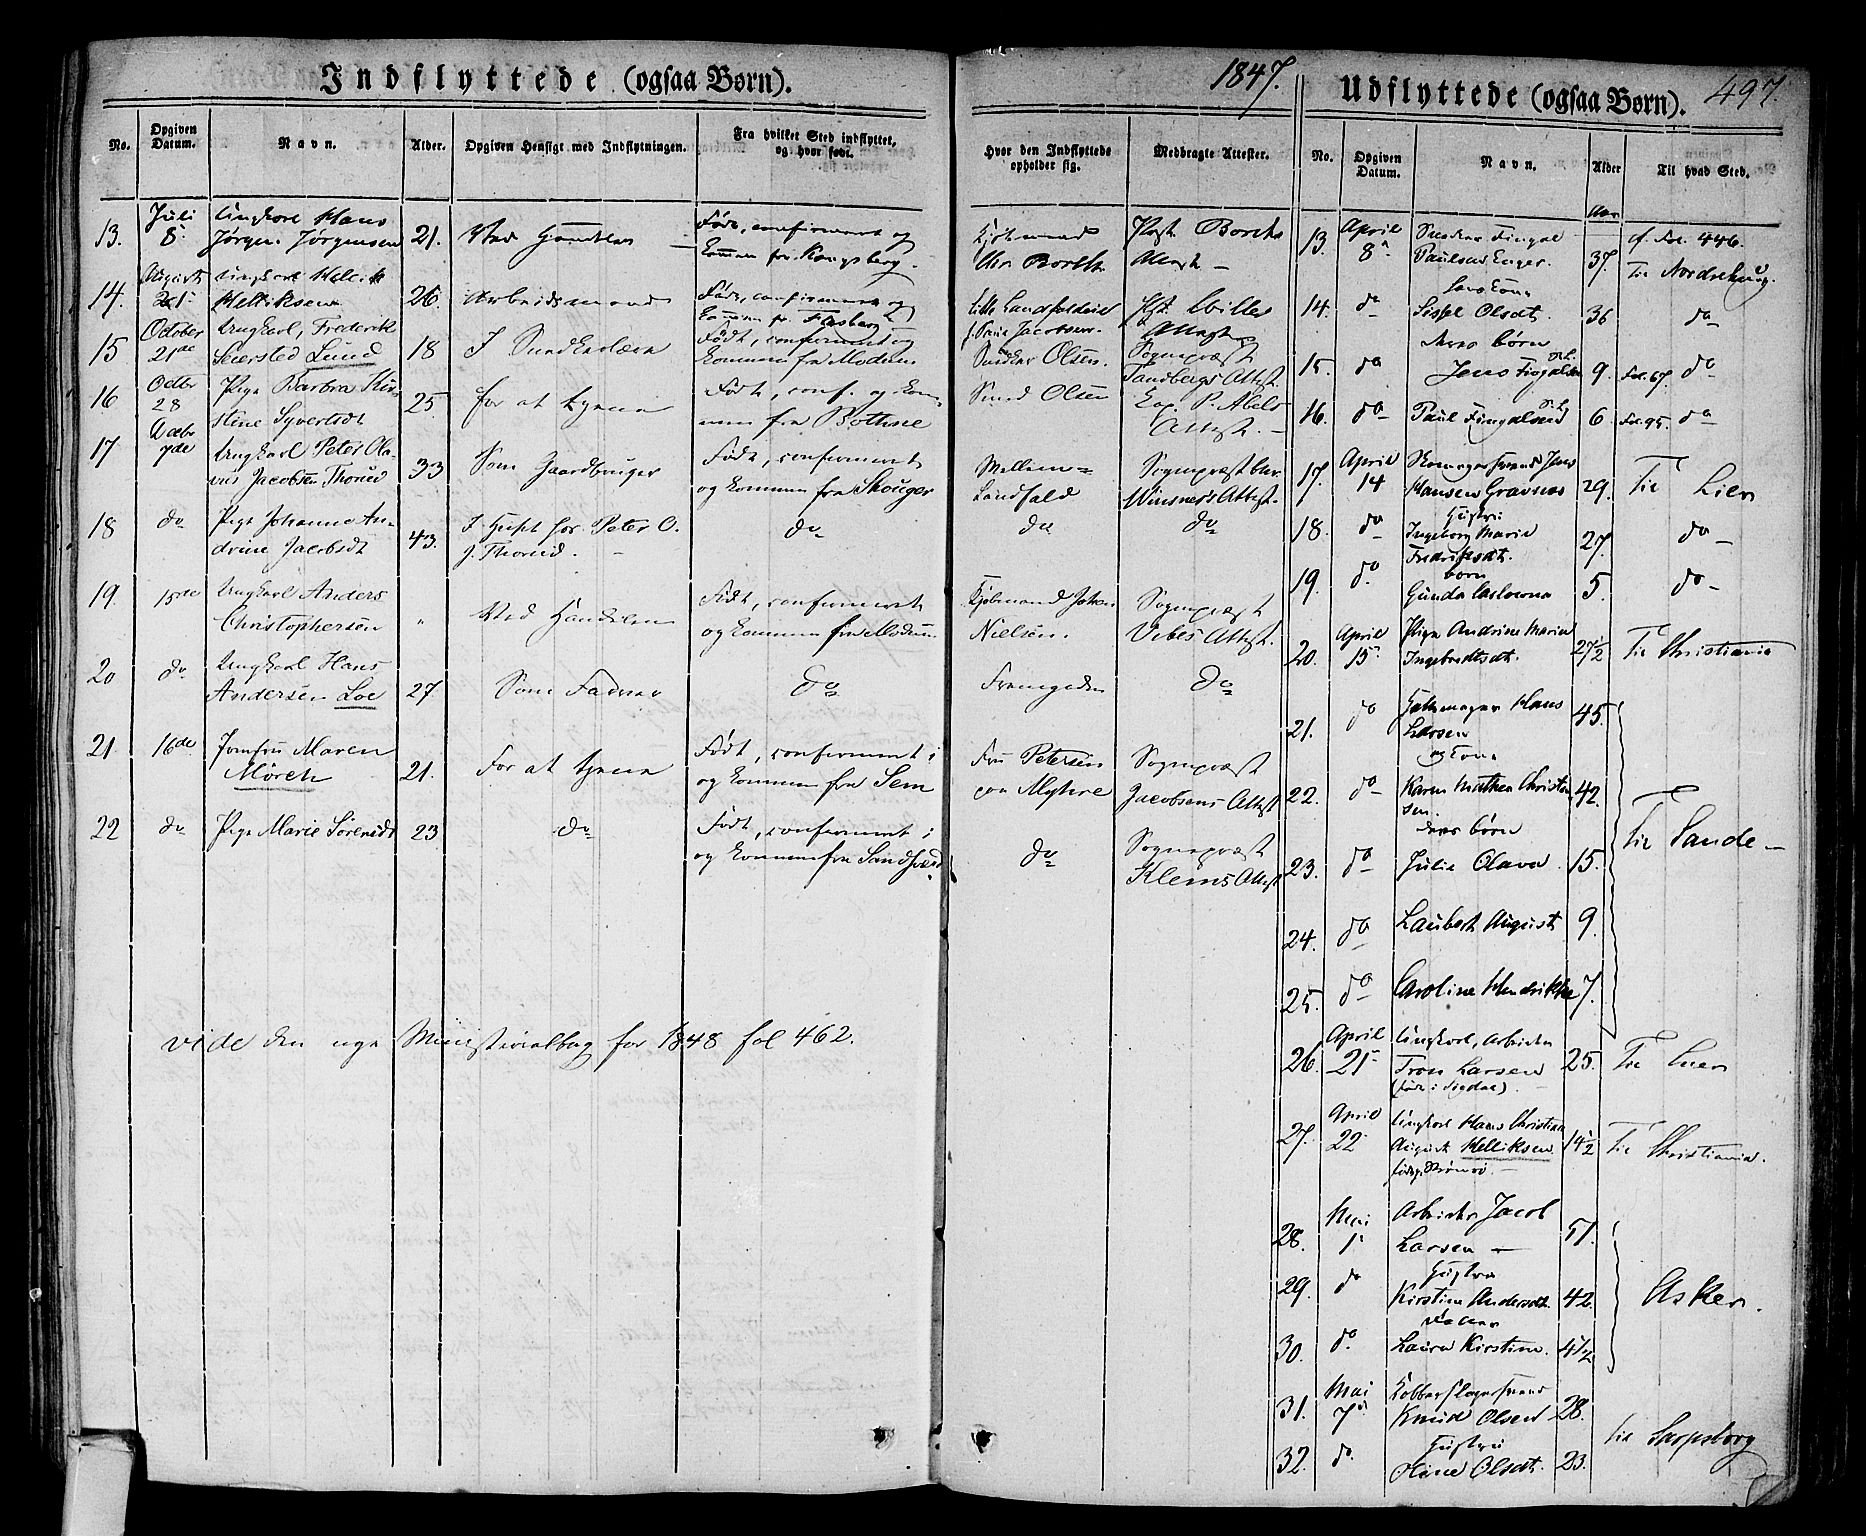 Indflyttede (ogsaa Børn).
No. Opgiven Datum. Navn. Alder. Opgiven Hensigt med Indflytningen. Fra hvilket Sted indflyttet, og hvor født.
13. Juli 8. Ungkarl Hans
Jørgen Jørgensen 21. Ved Handelen Født, confirmeret og
kommen fra Kongsberg.
14. Augusts 21. Ungkarl Hellik
Helliksen 26 Arbeidsmand Født, confirmeret og
kommen fr. Flesberg
15 October 21de Ungkarl, Frederik
Seiersted Lund 18 I Snedkerlære Født, confirmeret og
kommen fra Modum
16 Octbr 28 Pige Barbra Kir
stine Syvertsdt 25 for at tjene Født, conf. og kom
men fra Bothne
17 Decbr 7de Ungkarl Peter Ola-
vus Jacobsen Thorud 33 Som Gaardbruger Født, confirmeret
og kommen fra Skouger
18 do Pige Johanne An-
drine Jacobsdt 43. I Huset hos Peter O.
J. Thorud. do
19. 15de Ungkarl Anders
Christophersen " Ved Handelen Født, confirmeret
og kommen fra Modum
20 do Ungkarl Hans
Andersen Loe 27 Som do
21 16de Jomfru Maren
Mörch 21. For at tjene Født, confirmeret i
og kommen fra Sem
22 do Pige Marie Sörensdt 23 do Født, confirmeret i
og kommen fra Sandherred
vide den nye Ministerialbog for 1848 fol 462.
1847.
Hvor den Indflyttede opholder sig. Medbragte Attester.
Kjøbmand
Chr Borch. Borchs
Attest
Lille Landfaldeie
Jacobsen. Attest
Snedker Olsen. Sognepræst
Tandbergs Attest.
Smed Olsen Cap. P. Abels
Attest.
Mellem=
Landfald Sognepræst
Winsnes's Attest.
do do
Kjøbmand Johan
Nielsen. Sognepræst
Vibes Attest.
do
Fru Petersen
paa Myhre Sognepræst
Jacobsens Attest
do Sognepræst
Klems Attest
Udflyttede (ogsaa Børn). 497.
No. Opgiven Datum. Navn. Alder Til hvad Sted.
Aar
13. April 8 Snedker Fingal
Paulsen Enger. 37. cf. Fol. 446.
Til Nordrehoug.
14. do hans Kone
Sissel Olsdt. 36 do
15. do deres børn
Jens Fingalsen 9. Fol. 67. do
16. do Paul Fingalsen 6 Fol. 95. do
17. April 14 Skomagersvend Jens
Hansen Gravsnes 29. Til Lier
18. do Hustru
Ingeborg Marie
Fredriksdt. 27. do
19. do. børn
Gunda Laslovna 5. do
20. April 15 Pige Andrine Marie
Ingebretsdt. 27½ Til Christiania
21. do Hattemager Hans
Larsen 45.
22. do og Kone
Karen Mathea Christen
sen 42. Til Sande
23. do deres børn
Julie Olava 15.
24. do Laubert August 9.
25. do Caroline Hendrikke 7.
26. April 21 Ungkarl, Arbeider
Tron Larsen 25. Til Lier
(født i Sigdal)
27. April 22 Ungkarl Hans Christian
August Helliksen 14½ Til Christiania.
28. Mai 1 Arbeider Jacob
Larsen 51.
29. do Hustru
Kirstine Andersdt. 42. Asker.
30. do Laura Kirstine. 4½
31. Mai 7 Kobberslagersvend
Knud Olsen 28.
til Sarpsborg
32. do Hustru
Oline Olsdt. 23.